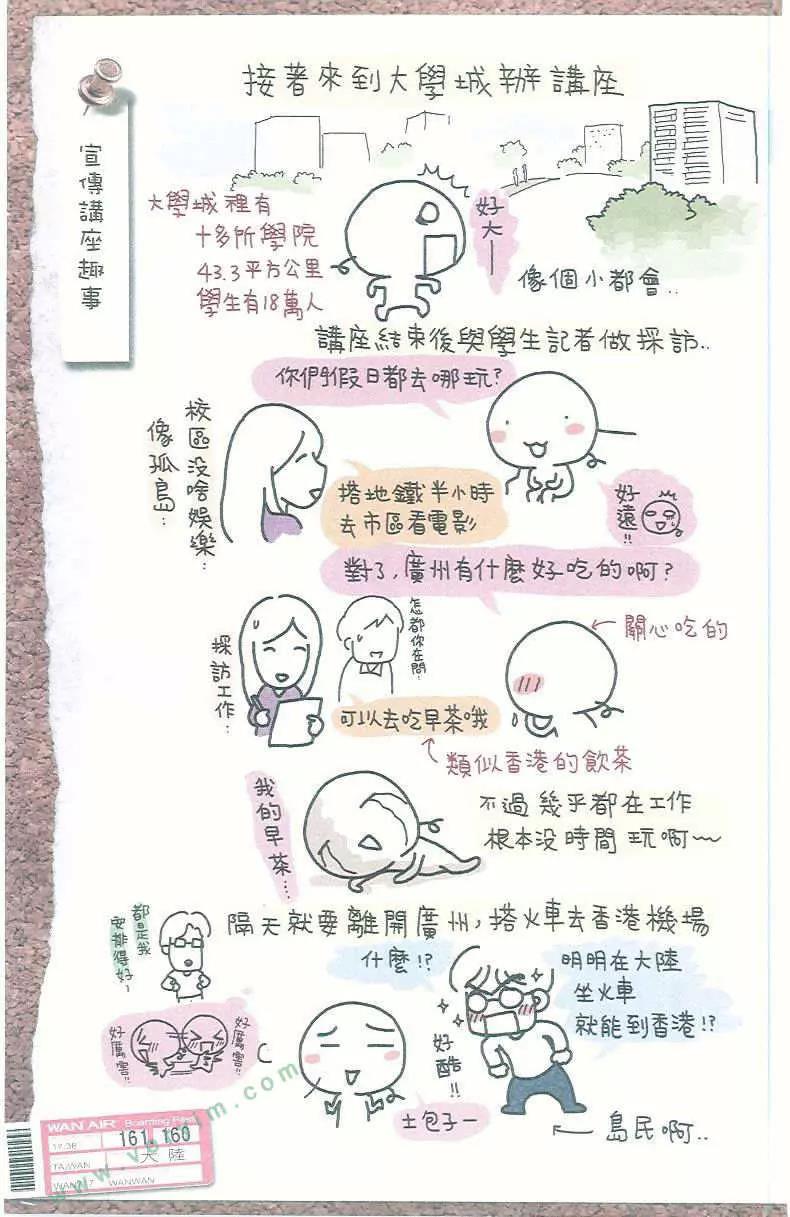 宣傳講座趣事
接著來到大學城辦講座
大學城裡有
十多所學院
43.3平方公里
學生有18萬人
好大—
像個小都會..
講座結束後與學生記者做採訪..
你們假日都去哪玩?
校區没啥娛樂..
像孤島..
搭地鐵半小時
去市區看電影
好遠!!
對了,廣州有什麼好吃的啊?
怎都你在問..
採訪工作..
關心吃的
可以去吃早茶哦
類似香港的飲茶
我的早茶...
不過幾乎都在工作
根本没時間玩啊~~
隔天就要離開廣州,搭火車去香港機場
都是我
安排得好~
什麼!?
明明在大陸
坐火車
就能到香港!?
好厲害!!
好厲害!!
好酷!!
土包子—
島民啊..
WAN AIR Boarding Pass
161.160
TAIWAN
大陸
WANWAN